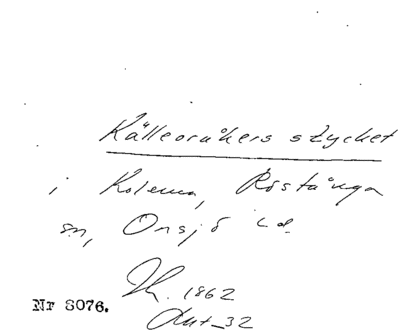 Källeoråkers stycket
i Kolema, Röstånga
sn, Onsjö hd.
1862
Nr 8076.